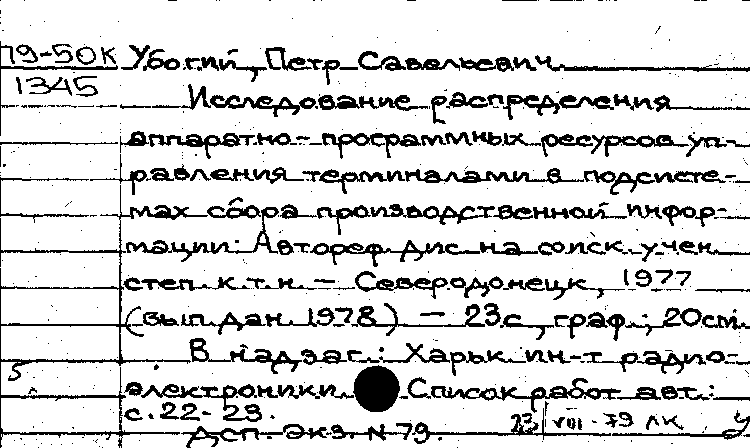 79-50К Убогий, Петр Савельевич
1345
Исследование распределения
аппаратно-программных ресурсов уп-
равления терминалами в подсисте-
мах сбора производственной инфор-
мации: Автореф. дис. на соиск. учен.
степ. к.т.н. - Северодонецк, 1977
(вып. дан. 1978) - 23с., граф.; 20см.
В надзаг.: Харьк. ин-т радио-
5
электроники. Список работ авт.:
с. 22-23.
ДСП. Экз. N 79. 23 VIII-79 ЛК